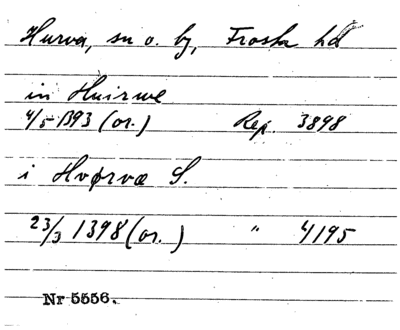 Hurva, sn o. by, Frosta hd
in Huirwe
4/5 1393 (or.) Rep. 3898
i Hvørvæ S.
23/3 1398 (or.) " 4195
Nr 5556.